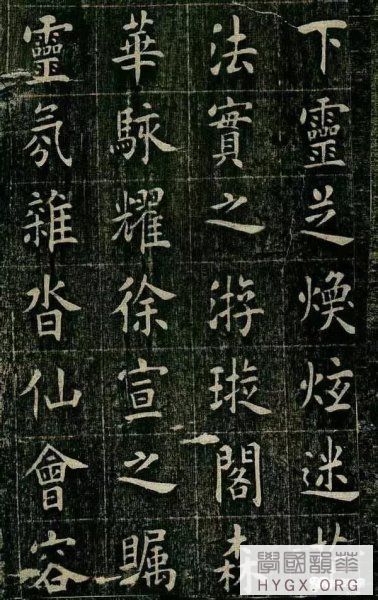 下靈芝煥炫迷
法實之游璇閣森
華駼耀徐宣之矚
靈氛雜沓仙會容
華韻國學
HYGX.ORG